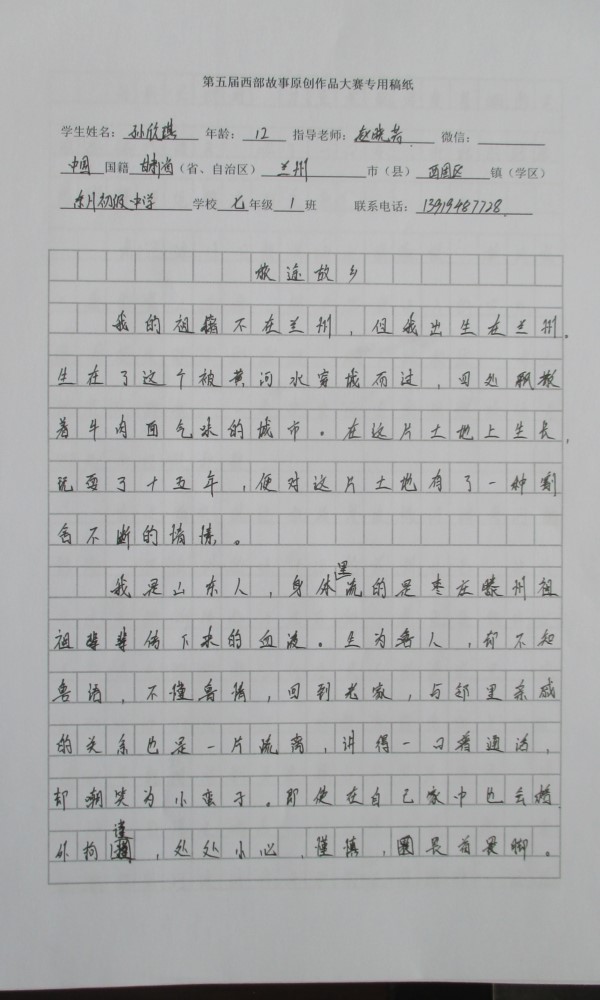 第五届西部故事原创作品大赛专用稿纸
学生姓名：孙欣琪 年龄：12 指导老师：赵晓芳 微信：
中国 国籍 甘肃省（省、自治区） 兰州 市（县） 西固区 镇（学区）
东川初级中学 学校 七 年级 1 班 联系电话：13919487728
故乡
我的祖籍不在兰州，但我出生在兰州。
生在了这个被黄河水穿城而过，四处飘散
着牛肉面气味的城市。在这片土地上生长，
玩耍了十五年，便对这片土地有了一种割
舍不断的情愫。
我是山东人，身体里流的是枣庄滕州祖
祖辈辈传下来的血液。生为鲁人，却不知
鲁语，不懂鲁情，回到老家，与邻里亲戚
的关系也是一片疏离，讲得一口普通话，
却嘲笑为小蛮子。即使在自己家中也会格
外拘谨，处处小心，谨慎，畏首畏脚。